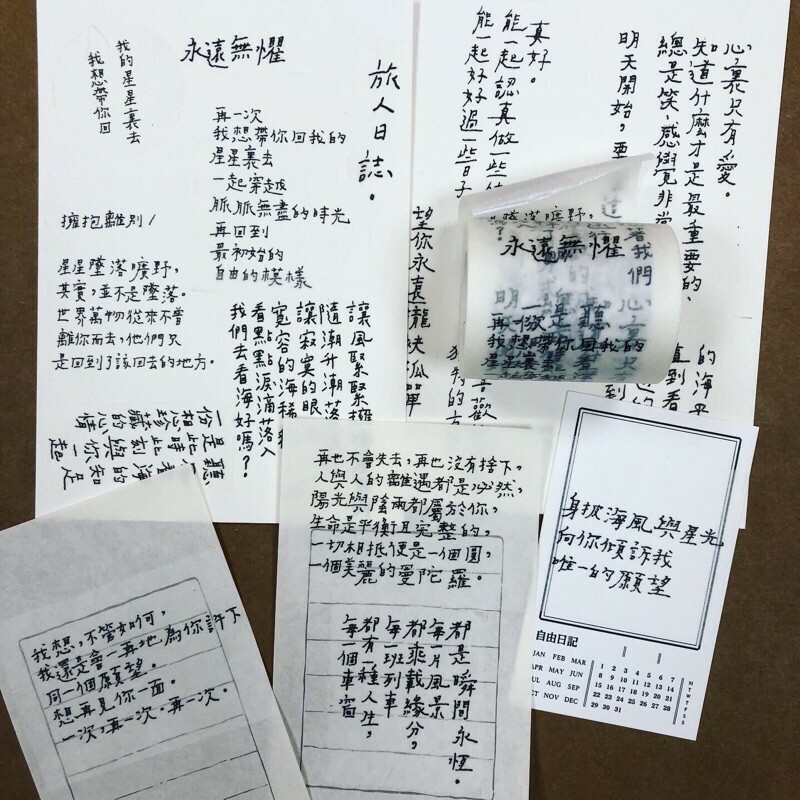 我的星星裏去
我想帶你回
永遠無懼
旅人日誌。
再一次
我想帶你回我的
星星裏去
一起穿越
脈脈無盡的時光
再回到
最初始的
自由的模樣
擁抱離別/
星星墜落曠野,
其實,並不是墜落。
世界萬物從來不曾
離你而去,他們只
是回到了該回去的地方。
讓風緊緊擁
隨潮升潮落
讓寂寞的眼
寬容的海稀
看點點淚滴落入
我們去看海好嗎?
心裏只有愛。
知道什麼才是最重要的、
總是笑、感覺非常
明天開始,要
真好。
能一起認真做一些
能一起好好過一些日子
望你永遠
的海平
直到看
喜歡
的方
墜落曠野,
永遠無懼
著我們心裏只
再一次
我想帶你回我的
星星裏
再也不會失去,再也沒有捨下。
人與人的離遇都是必然,
陽光與陰雨都屬於你,
生命是平衡且完整的,
一切相抵便是一個圓,
一個美麗的曼陀羅。
都是瞬間永恆。
每一片風景
都乘載緣分,
每一班列車
都有一種人生,
每一個車窗
我想,不管如何,
我還是會一再地為你許下
同一個願望。
想再見你一面。
一次,再一次,再一次。
身披海風與星光,
向你傾訴我
唯一的願望
自由日記
JAN FEB MAR
APR MAY JUN
JUL AUG SEP
OCT NOV DEC
1 2 3 4 5 6 7
8 9 10 11 12 13 14
15 16 17 18 19 20 21
22 23 24 25 26 27 28
29 30 31
M T W T F S S